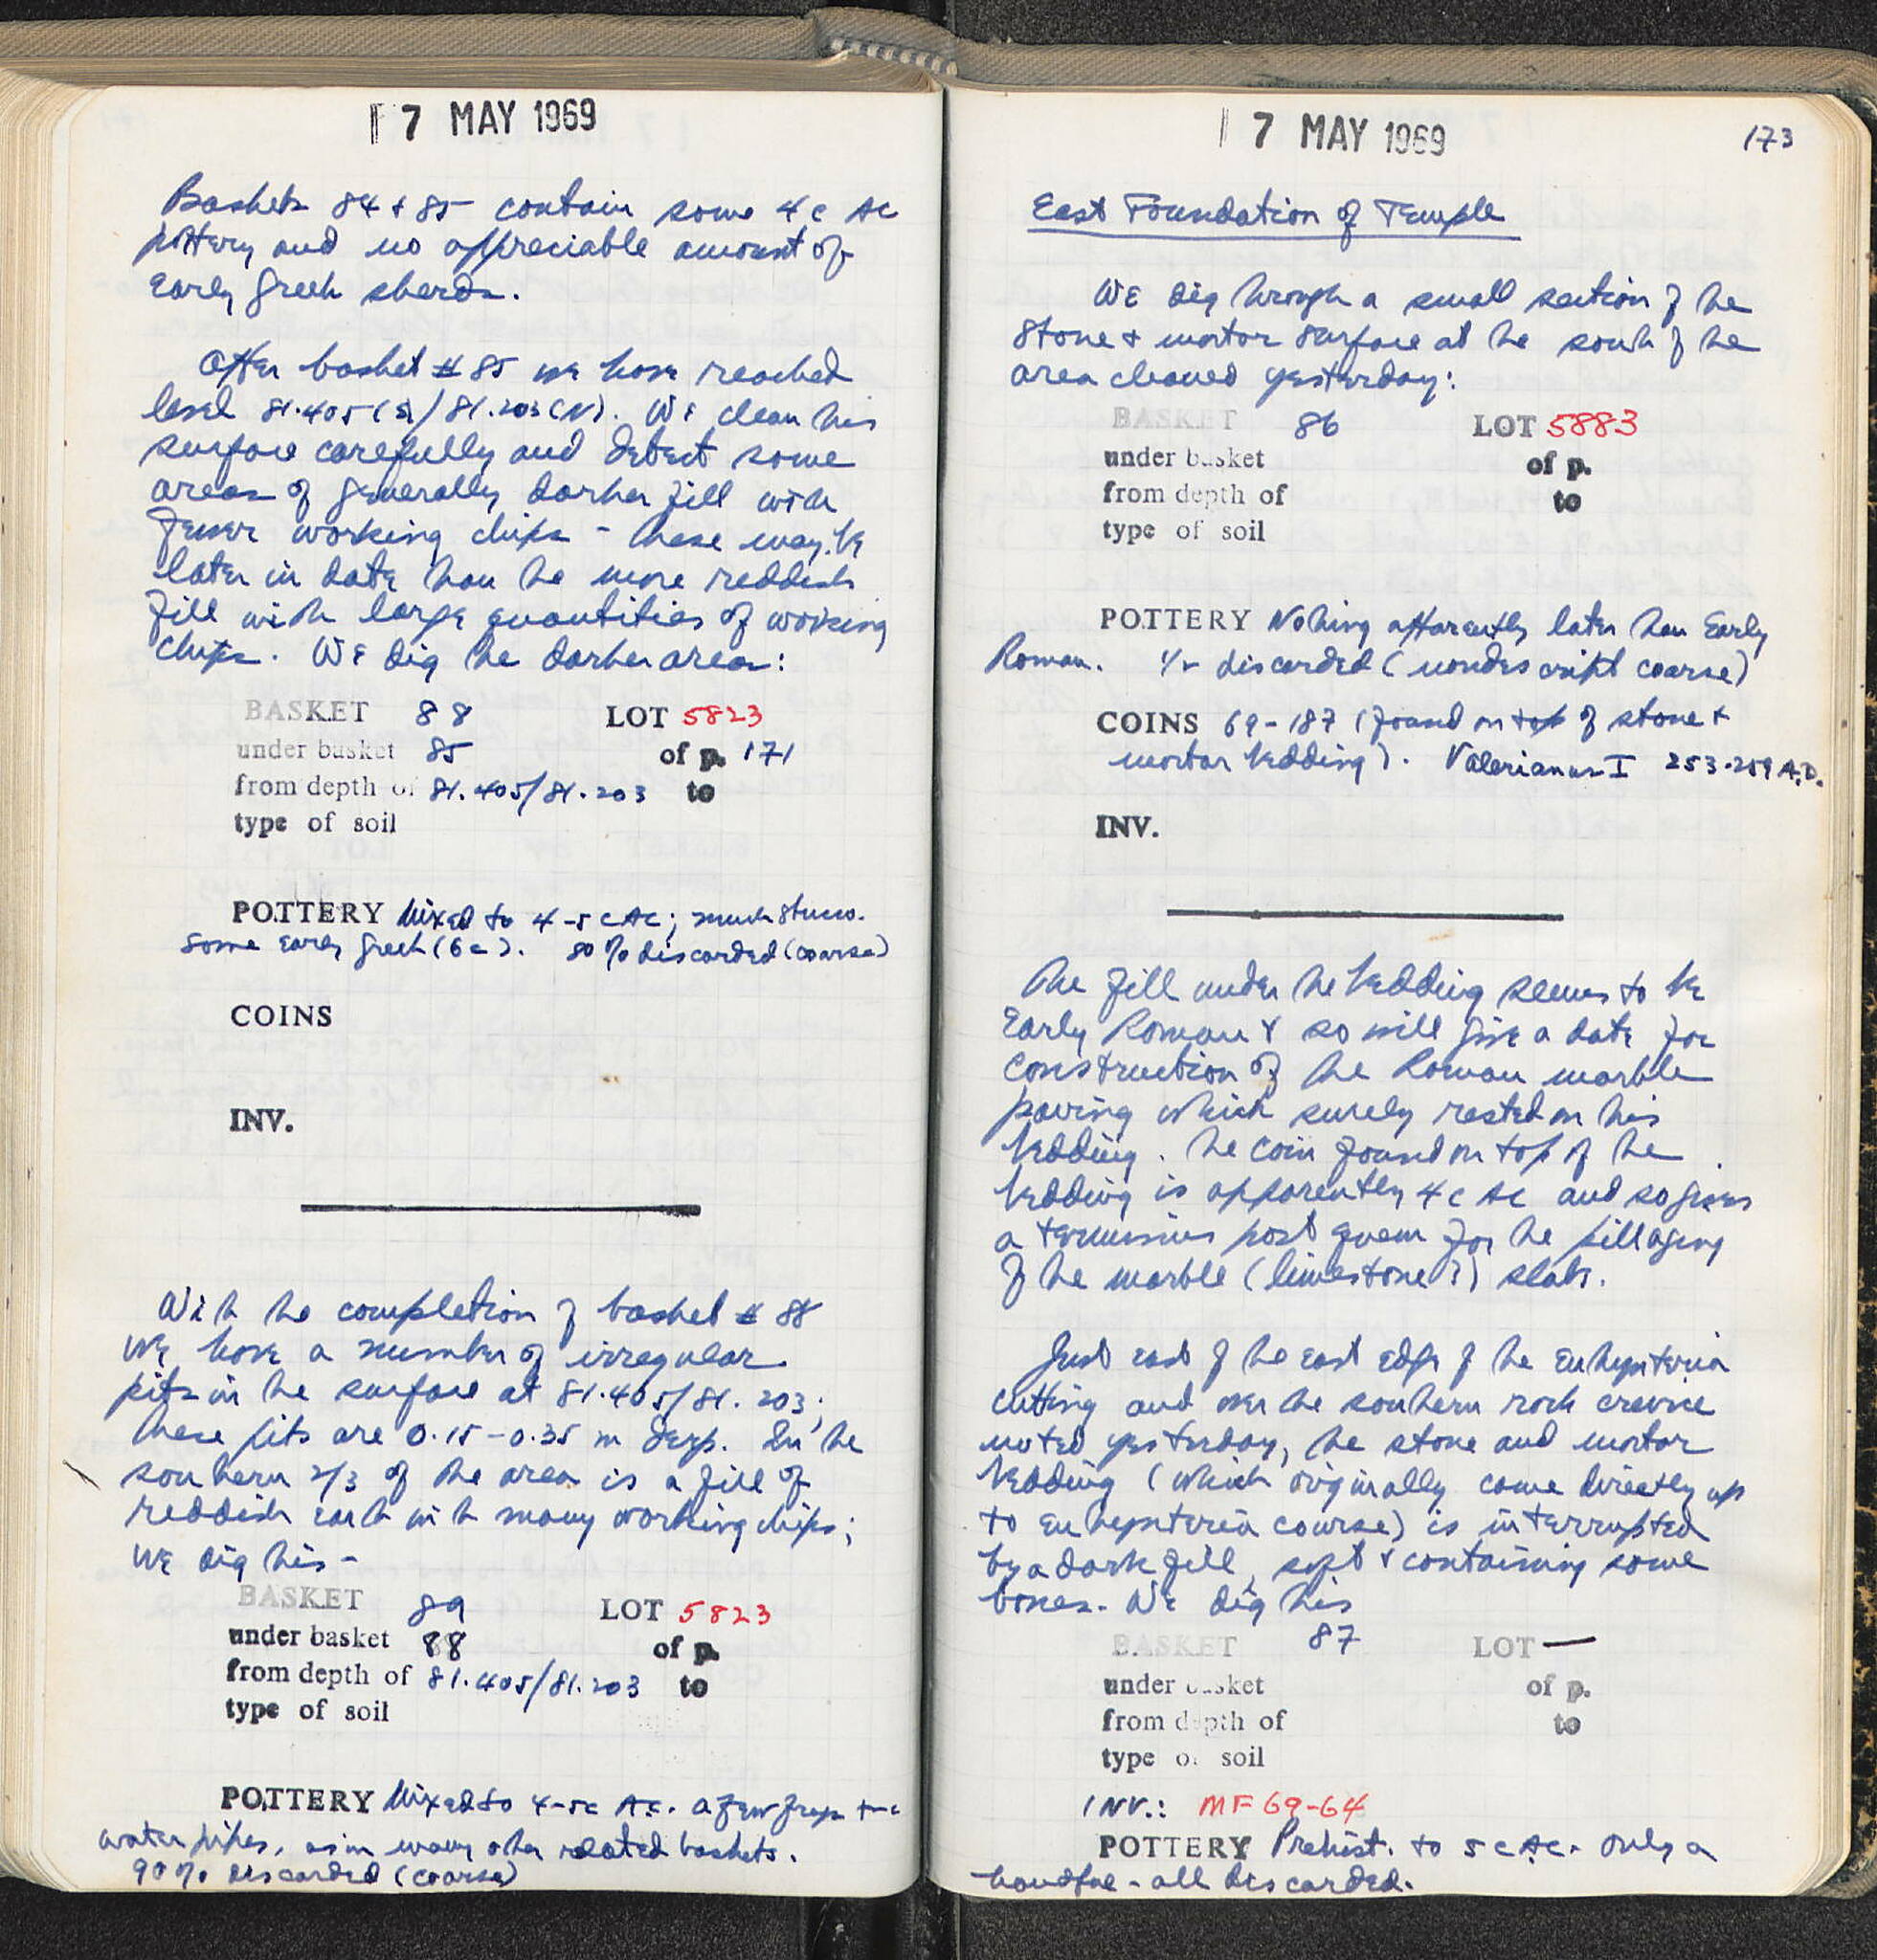 17 MAY 1969
Baskets 84 + 85 contain some 4 c AC
pottery and no appreciable amount of
Early Greek sherds.
After basket # 85 we have reached
level 81.405 (S)/81.203 (N). We clean this
surface carefully and detect some
areas of generally darker fill with
fewer working chips - these may be
later in date than the more reddish
fill with large quantities of working
chips. We dig the darker areas:
BASKET 88 LOT 5823
under basket 85 of p. 171
from depth of 81.405/81.203 to
type of soil
POTTERY Mixed to 4-5 c AC; much stucco.
Some Early Greek (6 c). 80% discarded (coarse)
COINS
INV.
With the completion of basket # 88
we have a number of irregular
pits in the surface at 81.405/81.203;
these pits are 0.15-0.35 m deep. In the
southern 2/3 of the area is a fill of
reddish earth with many working chips;
we dig this -
BASKET 89 LOT 5823
under basket 88 of p.
from depth of 81.405/81.203 to
type of soil
POTTERY Mixed to 4-5c A.C. a few frags t-c
water pipes, as in many other related baskets.
90% discarded (coarse)
17 MAY 1969
173
East Foundation of Temple
We dig through a small section of the
stone + mortar surface at the south of the
area cleaned yesterday:
BASKET 86 LOT 5883
under basket of p.
from depth of to
type of soil
POTTERY Nothing apparently later than Early
Roman. 1/2 discarded (nondescript coarse)
COINS 69-187 (found on top of stone +
mortar bedding). Valerianus I 253-259 A.D.
INV.
The fill under the bedding seems to be
Early Roman & so will give a date for
construction of the Roman marble
paving which surely rested on this
bedding. The coin found on top of the
bedding is apparently 4 c AC and so gives
a terminus post quem for the pillaging
of the marble (limestone?) slabs.
Just east of the east edge of the euthynteria
cutting and over the southern rock crevice
noted yesterday, the stone and mortar
bedding (which originally came directly up
to euthynteria course) is interrupted
by a dark fill, soft & containing some
bones. We dig this
BASKET 87 LOT —
under basket of p.
from depth of to
type of soil
INV.: MF 69-64
POTTERY Prehist. to 5 c AC. Only a
handful - all discarded.